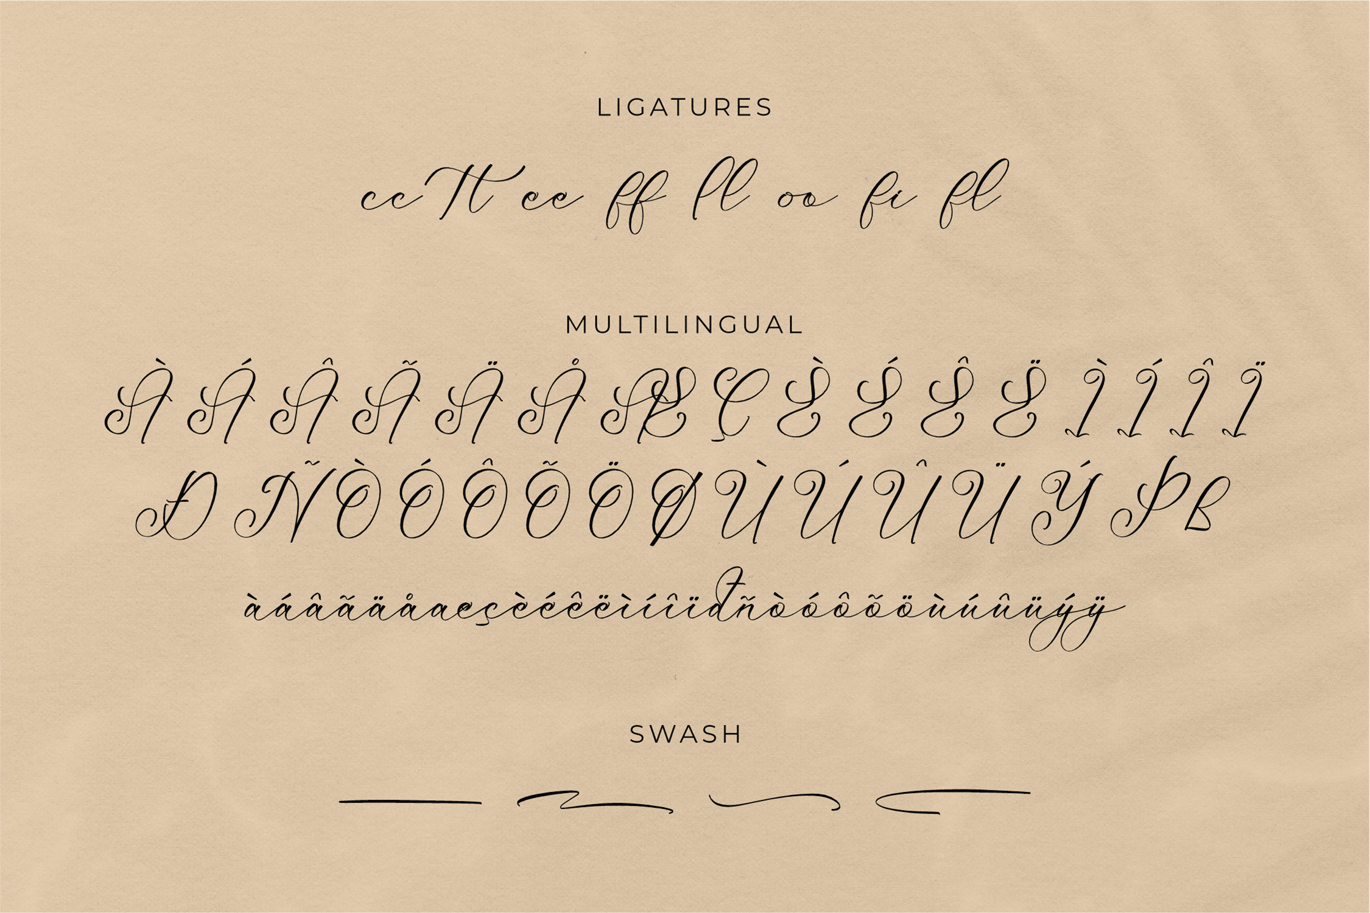 LIGATURES
cc tt ee ff ll oo fi fl
MULTILINGUAL
À Á Â Ã Ä Å Æ Ç È É Ê Ë Ì Í Î Ï
Ð Ñ Ò Ó Ô Õ Ö Ø Ù Ú Û Ü Ý Þ ß
àáâãäåæçèéêëìíîïđñòóôõöùúûüýÿ
SWASH